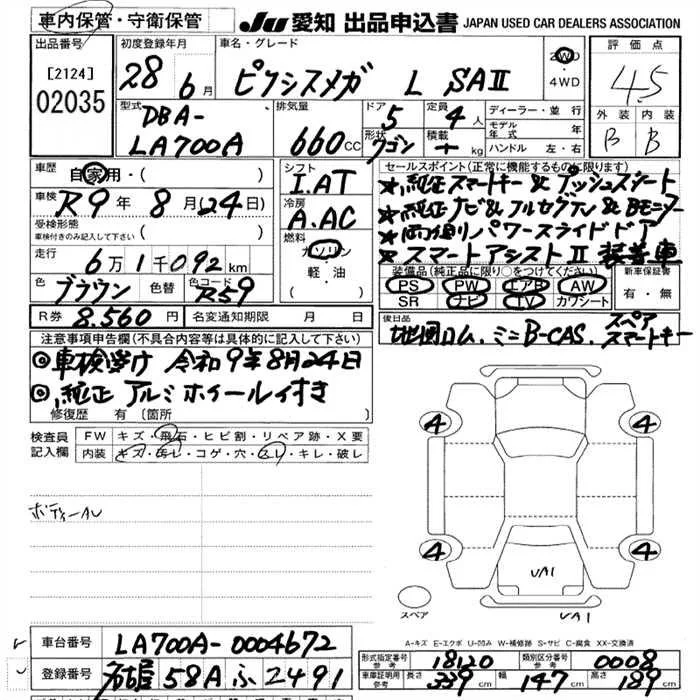 車内保管・守衛保管
JU 愛知 出品申込書 JAPAN USED CAR DEALERS ASSOCIATION
出品番号 [2124] 02035
初度登録年月 28 6月
車名・グレード ピクシスメガ L SAⅡ
2WD ・ 4WD
評価点 4.5
外装 内装
B B
型式 DBA-LA700A
排気量 660cc
ドア 5 形状 ワゴン
定員 4人 積載 +
ディーラー・並行
モデル年式 年
ハンドル 左・右
車歴 自家用・( )
車検 R9年 8月(24日)
受検形態 車検付きのみ記入して下さい ( )
走行 6万1千092km
色 ブラウン 色替 カラーコード R59
R券 8.560円 名変通知期限 月 日
シフト I.AT
冷房 A.AC
燃料 ガソリン 軽・油
セールスポイント(正常に機能するものに限ります)
*純正スマートキー&プッシュスタート
*純正ナビ&フルセグTV&Bモニター
*両側パワースライドドア
*スマートアシストⅡ装着車
装備品(純正品に限り○をつけてください)
PS PW エアB AW
SR ナビ TV カワシート
新車保証書 有・無
後日品 地図ロム.ミニB-CAS.スペアスマートキー
注意事項申告欄(不具合内容等は具体的に記入して下さい)
◎車検受け 令和9年8月24日
◎純正アルミホイール付き
修復歴 有 〔箇所 〕
検査員記入欄
FW キズ・飛石・ヒビ割・リペア跡・X要
内装 キズ・汚レ・コゲ・穴・スレ・キレ・破レ
4 4
4 4
UA1
スペア
UA1
A-キズ E-エクボ U-凹み W-補修跡 S-サビ C-腐食 XX-交換済
車台番号 LA700A-0004672
登録番号 名古屋 58A ふ 2491
形式指定番号 参考 18120 類別区分番号 参考 0008
車庫証明用 参考 長さ 339cm 幅 147cm 高さ 189cm